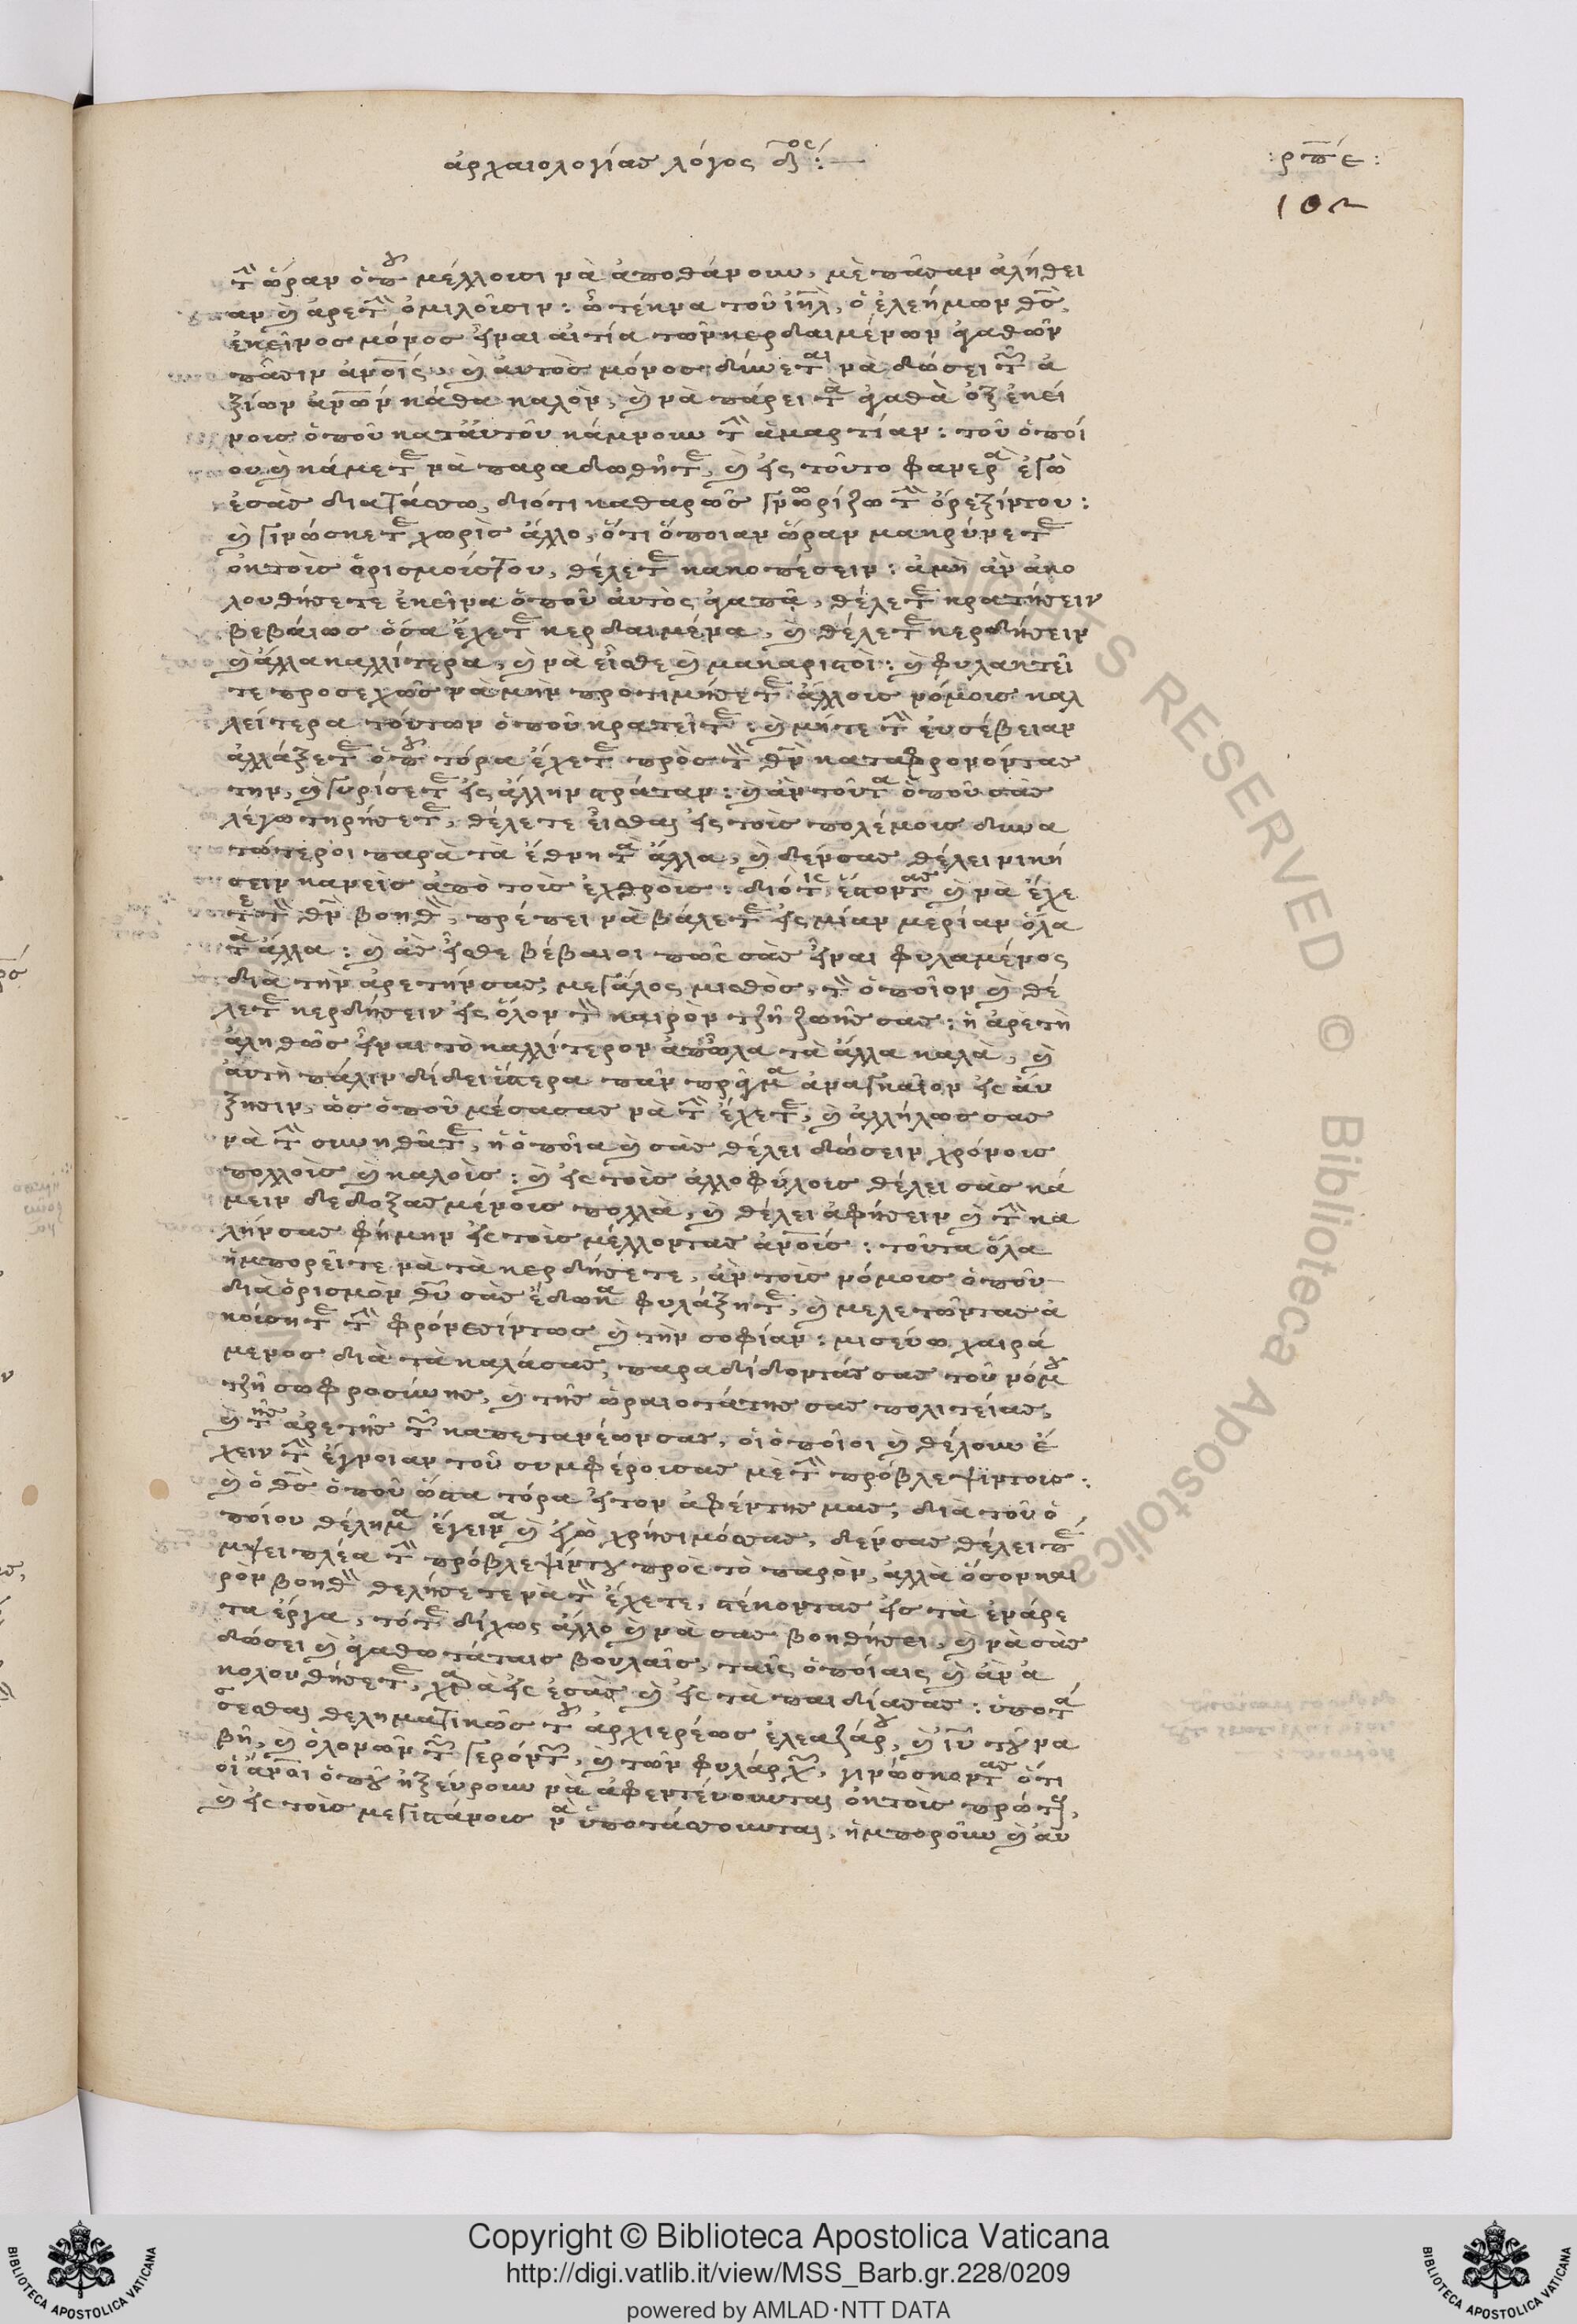 ἀρχαιολογίας λόγος δος:
:ρπέ:
τὴν ὥραν ὁποῦ μέλλουσι νὰ ἀποθάνουν, μὲ πᾶσαν ἀλήθει
αν καὶ ἀρετὴν ὁμιλοῦσιν: ὦ τέκνα τοῦ ἰηλ, ὁ ἐλεήμων θς,
ἐκεῖνος μόνος εἶναι αἰτία τῶν κερδαιμένων ἀγαθῶν
πᾶσιν ἀνοίς, καὶ αὐτὸς μόνος δύνεται νὰ δώσει τῶν ἀ
ξίων ἀνων κάθα καλὸν, καὶ νὰ πάρει τὰ ἀγαθὰ ὀξ ἐκεί
νοις ὁποῦ κατ' αὐτοῦ κάμνουν τὴν ἁμαρτίαν: τοῦ ὁποί
ου καὶ κάμετε νὰ παραδωθῆτε, καὶ εἰς τοῦτο φανερὰ ἐγὼ
ἐσᾶς διατάσσω, διότι καθαρῶς γνωρίζω τὴν ὄρεξίντου:
καὶ γινώσκετε χωρὶς ἄλλο, ὅτι ὅποιαν ὥραν μακρύνετε
ὀκτοὶς ὁρισμοίςτου, θέλετε κακοπέσειν: ἀμὴ ἂν ἀκο
λουθήσετε ἐκεῖνα ὁποῦ αὐτὸς ἀγαπᾷ, θέλετε κρατήσειν
βεβαίως ὅσα ἔχετε κερδαιμένα, καὶ θέλετε κερδήσειν
καὶ ἄλλα καλλίτερα, καὶ νὰ εἶσθε καὶ μακαριστοὶ: καὶ φυλακτεῖ
τε προσεχῶς νὰ μὴν προτιμήσετε ἄλλοις νόμοις καλ
λείτερα τούτων ὁποῦ κρατεῖτε: καὶ μήτε τὴν εὐσέβειαν
ἀλλάξετε ὁποῦ τόρα ἔχετε πρὸς τὸν θν καταφρονόντας
την, καὶ γυρίσετε εἰς ἄλλην στράταν: καὶ ἂν τοῦτα ὁποῦ σᾶς
λέγω τηρήσετε, θέλετε εἶσθαι εἰς τοὶς πολέμοις δυνα
τώτεροι παρὰ τὰ ἔθνη τὰ ἄλλα, καὶ δένσας θέλει νική
σειν κανεὶς ἀπὸ τοὶς ἐχθροὶς: διότις ἔστοντας καὶ νὰ ἔχε
τε τὸν θν βοηθὸν, πρέπει νὰ βάλετε εἰς μίαν μερίαν ὅλα
τὰ ἄλλα: καὶ ἂς εἶσθε βέβαιοι πῶς σᾶς εἶναι φυλαμένος
διὰ τὴν ἀρετήν σας, μεγάλος μισθὸς, τὸν ὁποῖον καὶ θέ
λετε κερδήσειν εἰς ὅλον τὸν καιρὸν τζῆ ζωῆς σας: ἡ ἀρετὴ
ἀληθῶς εἶναι τὸ καλλίτερον ἀπ' ὅλα τὰ ἄλλα καλὰ, καὶ
αὐτὴ πάλιν δίδει ὕστερα πᾶν πρᾶγμα ἀναγκαῖον εἰς αὔ
ξησιν, ὡς ὁποῦ μέσα σας νὰ τὴν ἔχετε, καὶ ἀλλήλως σας
νὰ τὴν συνηθᾶτε, ἡ ὁποῖα καὶ σᾶς θέλει δώσειν χρόνοις
πολλοὶς καὶ καλοὶς: καὶ εἰς τοὶς ἀλλοφύλοις θέλει σᾶς κά
μειν δεδοξασμένοις πολλὰ, καὶ θέλει ἀφήσειν καὶ τὴν κα
λήν σας φήμην εἰς τοὶς μέλλοντας ἀνοίς: τοῦτα ὅλα
ἠμπορεῖτε νὰ τὰ κερδήσετε, ἂν τοὶς νόμοις ὁποῦ
διὰ ὁρισμὸν θυ σᾶς ἔδωκα φυλάξητε, καὶ μελετῶντας ἀ
κούσητε τὴν φρόνεσίντως καὶ τὴν σοφίαν: μισεύω χαιρά
μενος διὰ τὰ καλάσας, παραδίδοντάς σας τοῦ νόμου
τζῆ σωφροσύνης, καὶ τῆς ὡραιοτάτης σας πολιτείας,
καὶ τῆς ἀρετῆς τῶν καπετανέων σας, οἱ ὁποῖοι καὶ θέλουν ἔ
χειν τὴν ἔγνοιαν τοῦ συμφέροισας μὲ τὴν πρόβλεψίντοις:
καὶ ὁ θς ὁποῦ ὥστα τόρα ἦτον ἀφέντης μας, διὰ τοῦ ὁ
ποίου θέλημα ἔγεινα καὶ ἐγὼ χρήσιμόσσας, δένσας θέλει πέ
μψει πλέα τὴν πρόβλεψίντου πρὸς τὸ παρὸν, ἀλλὰ ὅσον και
ρὸν βοηθὸν θελήσετε νὰ τὸν ἔχετε, στέκοντας εἰς τὰ ἐνάρε
τα ἔργα, τότε δίχως ἄλλο καὶ νὰ σας βοηθήσει, καὶ νὰ σᾶς
δώσει καὶ ἀγαθωτάταις βουλαῖς, ταῖς ὁποίαις καὶ ἂν ἀ
κολουθήσετε, χαρὰ εἰς ἐσᾶς καὶ εἰς τὰ παιδία σας: ὑποτά
σεσθαι θεληματικῶς τοῦ ἀρχιερέως ἐλεαζάρου, καὶ ἰυ τοῦ να
βῆ, καὶ ὁλονῶν τῶν γερόντων, καὶ τῶν φυλάρχων, γινώσκοντας ὅτι
οἱ ἄνοι ὁποῦ ἠξεύρουν νὰ ἀφεντεύουνται ὀκτοὶς πρώτοις,
καὶ εἰς τοὶς μεγιστάνοις νὰ ὑποτάσσουνται, ἠμποροῦν καὶ αὐ
Copyright © Biblioteca Apostolica Vaticana
http://digi.vatlib.it/view/MSS_Barb.gr.228/0209
powered by AMLAD·NTT DATA